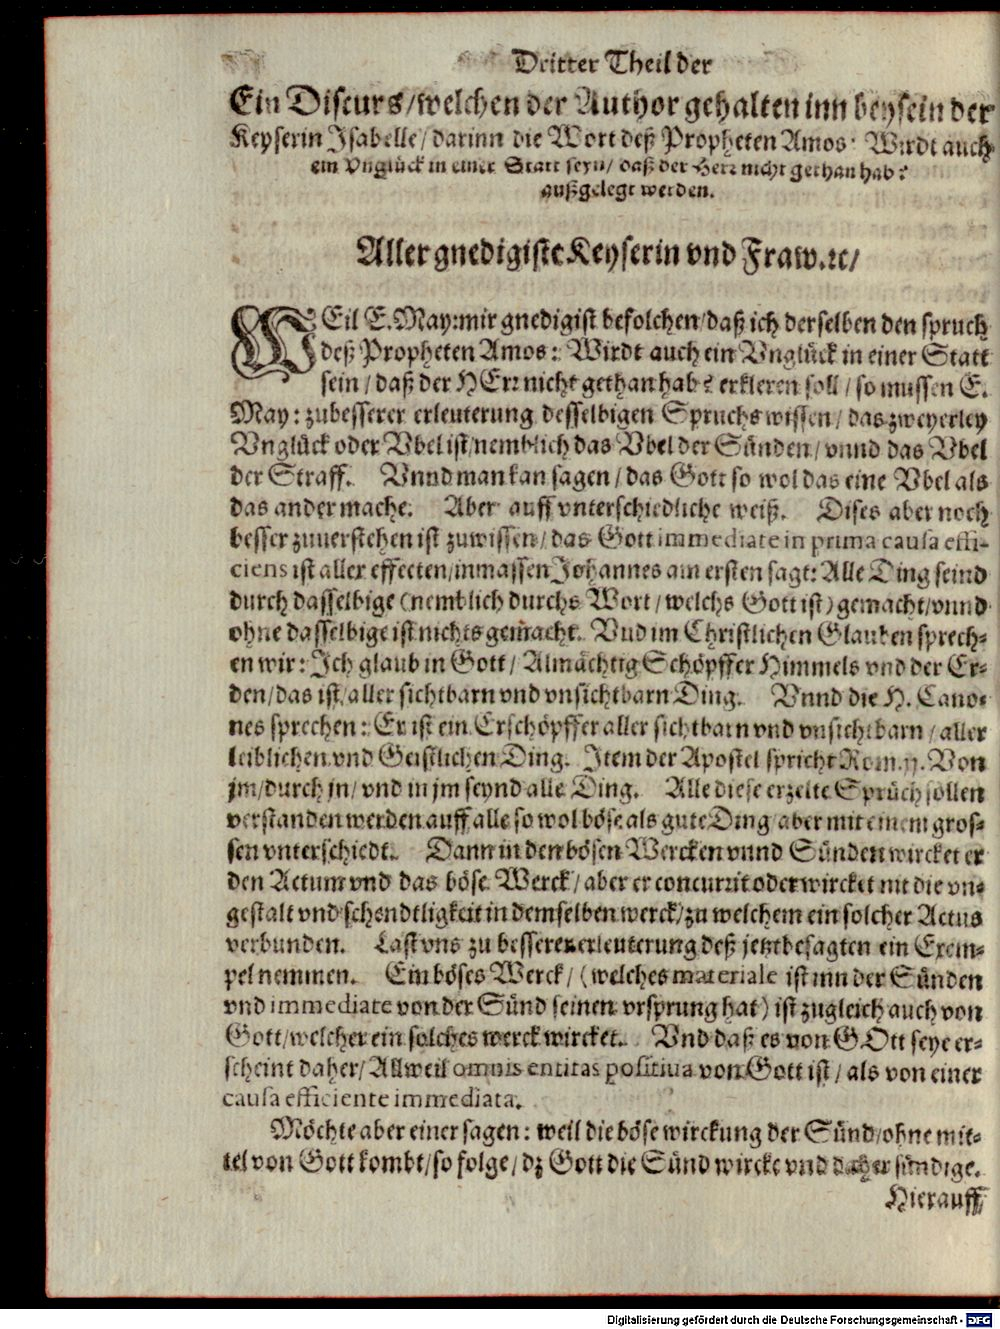 Dritter Theil der
Ein Discurs/welchen der Author gehalten inn beysein der
Keyserin Isabelle/darinn die Wort deß Propheten Amos: Wirdt auch
ein Vnglück in einer Statt seyn/ daß der Herr nicht gethan hab?
außgelegt werden.
Aller gnedigiste Keyserin vnd Fraw.ꝛc/
WEil E.May:mir gnedigist befolchen/daß ich derselben den spruch
deß Propheten Amos: Wirdt auch ein Vnglück in einer Statt
sein/daß der HErr nicht gethan hab? erkleren soll/so mussen E.
May: zubesserer erleuterung desselbigen Spruchs wissen/ das zweyerley
Vnglück oder Vbel ist/nemblich das Vbel der Sünden/vnnd das Vbel
der Straff. Vnnd man kan sagen/das Gott so wol das eine Vbel als
das ander mache. Aber auff vnterschiedliche weiß. Dises aber noch
besser zuuerstehen ist zuwissen/das Gott immediate in prima causa effi-
ciens ist aller effecten/inmassen Johannes am ersten sagt: Alle Ding seind
durch dasselbige (nemblich durchs Wort/welchs Gott ist) gemacht/vnnd
ohne dasselbige ist nichts gemacht. Vnd im Christlichen Glauben sprech-
en wir: Ich glaub in Gott/ Almächtig Schöpffer Himmels vnd der Er-
den/das ist/aller sichtbarn vnd vnsichtbarn Ding. Vnnd die H. Cano-
nes sprechen: Er ist ein Erschöpffer aller sichtbarn vnd vnsichtbarn/aller
leiblichen vnd Geistlichen Ding. Item der Apostel spricht Rom. 11. Von
jm/durch jn/vnd in jm seynd alle Ding. Alle diese erzelte Sprüch sollen
verstanden werden auff alle so wol böse als gute Ding/aber mit einem gros-
sen vnterschiedt. Dann in den bösen Wercken vnnd Sünden wircket er
den Actum vnd das böse Werck/ aber er concurrit oder wircket nit die vn-
gestalt vnd schendtligkeit in demselben werck/zu welchem ein solcher Actus
verbunden. Last vns zu besserer erleuterung deß jetztbesagten ein Exem-
pel nemmen. Ein böses Werck/ (welches materiale ist inn der Sünden
vnd immediate von der Sünd seinen vrsprung hat) ist zugleich auch von
Gott/welcher ein solches werck wircket. Vnd daß es von GOtt seye er-
scheint daher/Allweil omnis entitas positiua von Gott ist/als von einer
causa efficiente immediata.
Möchte aber einer sagen: weil die böse wirckung der Sünd/ohne mit-
tel von Gott kombt/so folge/dz Gott die Sünd wircke vnd daher sündige.
Hierauff
Digitalisierung gefördert durch die Deutsche Forschungsgemeinschaft - DFG